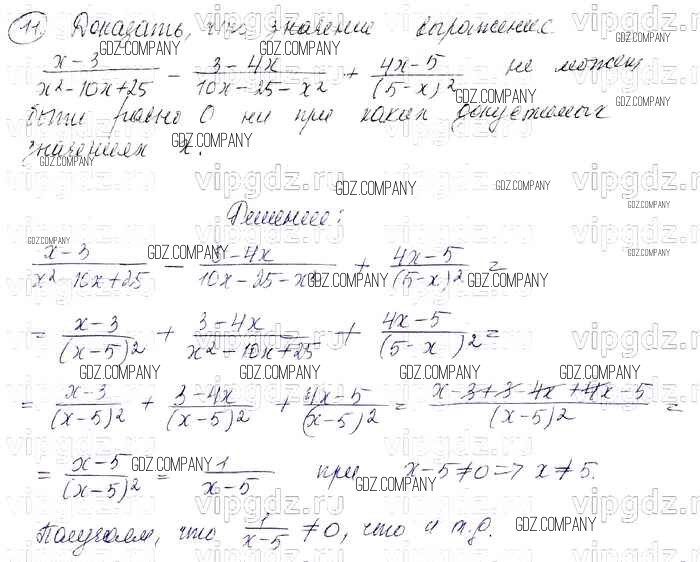 11. Доказать, что значение выражения
x-3/x²-10x+25 - 3-4x/10x-25-x² + 4x-5/(5-x)² не может
быть равно 0 ни при каких допустимых
значениях x.
Решение:
x-3/x²-10x+25 - 3-4x/10x-25-x² + 4x-5/(5-x)² =
= x-3/(x-5)² + 3-4x/x²-10x+25 + 4x-5/(5-x)² =
= x-3/(x-5)² + 3-4x/(x-5)² + 4x-5/(x-5)² = x-3+3-4x+4x-5/(x-5)² =
= x-5/(x-5)² = 1/x-5 при x-5≠0 => x≠5.
Получаем, что 1/x-5 ≠0, что и т.д.
GDZ.COMPANY
vipgdz.ru